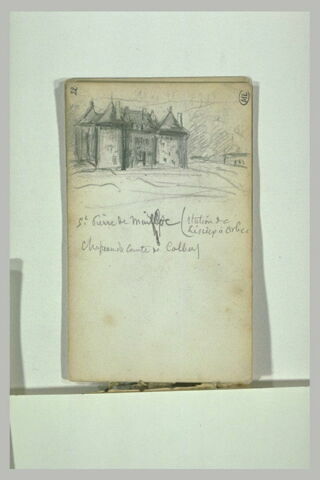 22
St Pierre de Mailloc (station de
Lisieux à Orbec
Chateau du Comte de Colbert